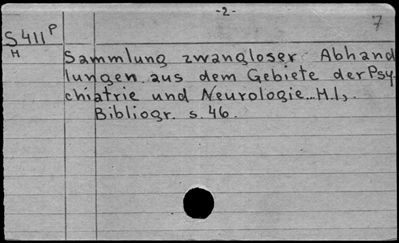 -2-
7
S411P
H
Sammlung zwangloser Abhand
lungen aus dem Gebiete der Psy
chiatrie und Neurologie...H.I,.
Bibliogr. s. 46.